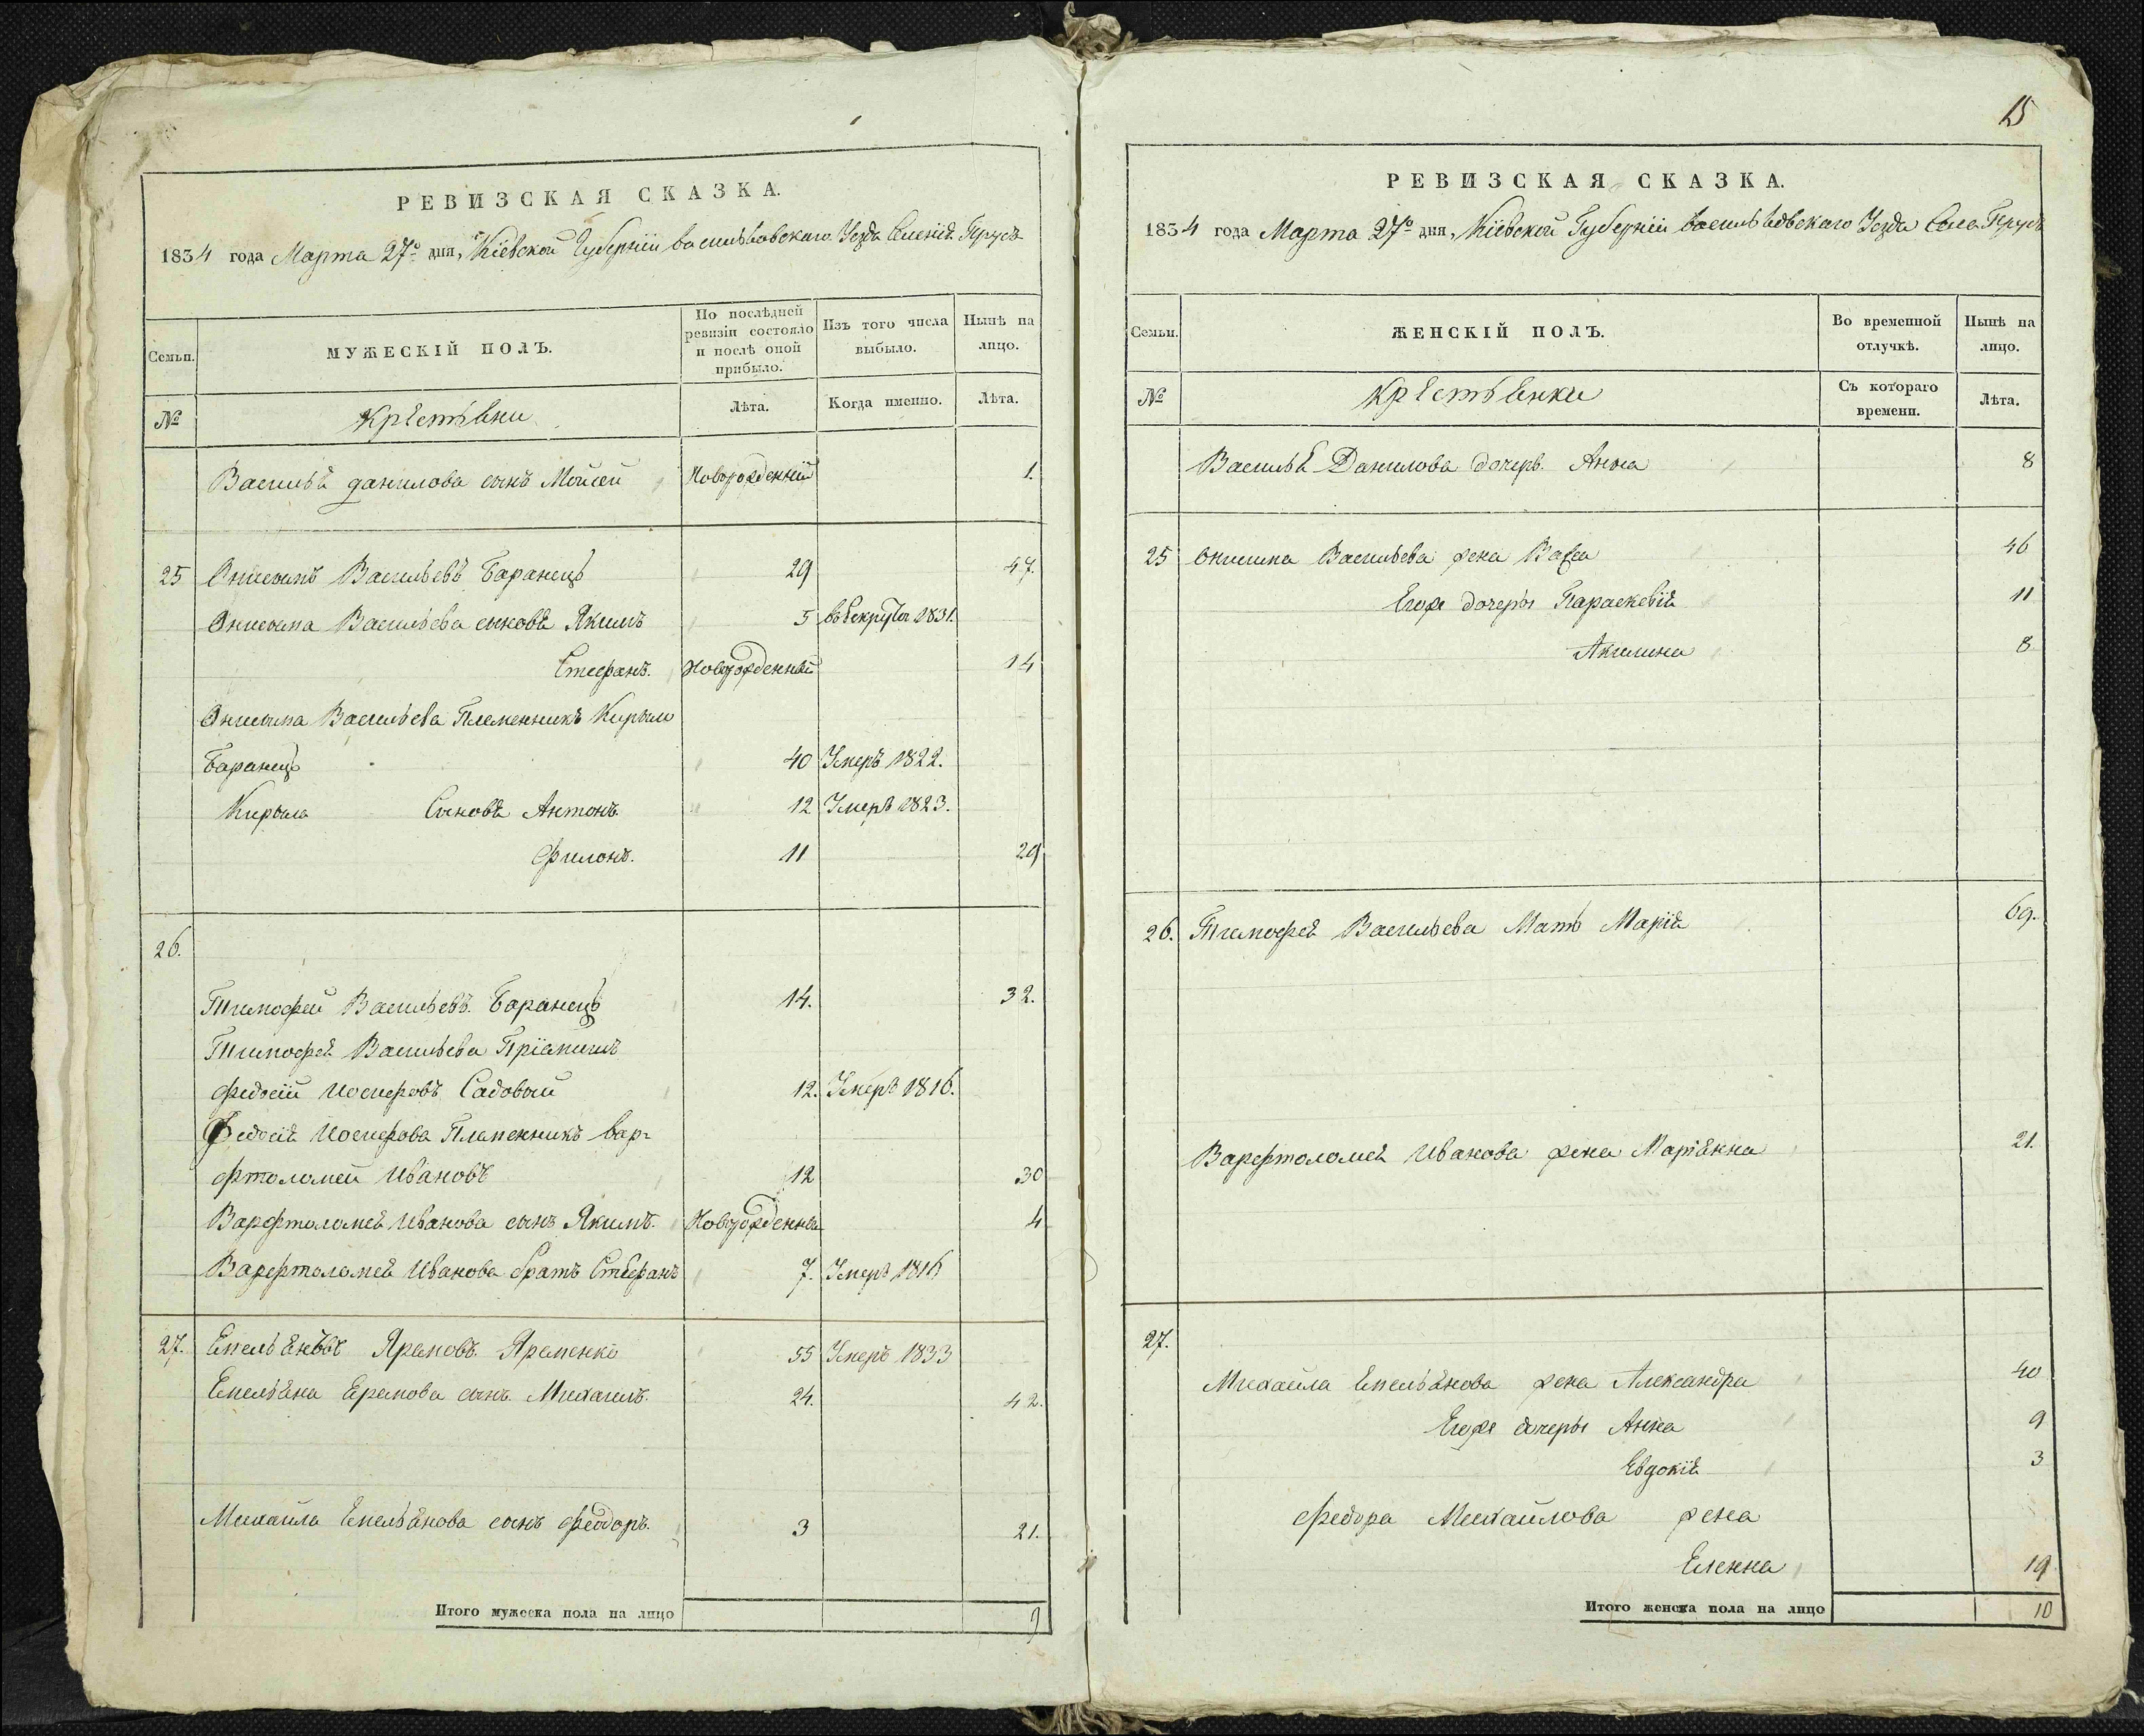 15
РЕВИЗСКАЯ СКАЗКА.
1834 года Марта 27го дня, Кіевской Губерніи Васильковскаго Уезда
Семьи.
МУЖЕСКІЙ ПОЛЪ.
По послѣдней ревизіи состояло и послѣ оной прибыло.
Изъ того числа выбыло.
Нынѣ на лицо.
№
Крестяни
Лѣта.
Когда именно.
Лѣта.
Василья данилова сынъ Мойсей Новорожденній 1.
25 Онисимъ Васильевъ Баранецъ 29 47.
Онисима Васильева сыновя Якимъ 5 1831.
Стефанъ. Новорожденній 14
Онисима Васильева Племенникъ Кирыло
Баранецъ 40 Умеръ 1822.
Кирыла Сыновя Антонъ 12 Умеръ 1823.
Филонъ. 11 29
26.
Тимофей Васильевъ Баранецъ 14. 32.
Тимофея Васильева Пріемишъ
Федосій Иосифовъ Садовый 12. Умеръ 1816.
Федосія Иосифова Племенникъ Вар-
фтоломей Ивановъ 12 30
Варфтоломея Иванова сынъ Якимъ. Новорожденны 4
Варфтоломея Иванова братъ Стефанъ 7. Умеръ 1816
27. Яремовъ Яременко 55 Умеръ 1833
Емельяна Еремова сынъ Михаилъ. 24. 42.
Михаила Емельянова сынъ Феодоръ. 3 21.
Итого мужеска пола на лицо 9
РЕВИЗСКАЯ СКАЗКА.
1834 года Марта 27го дня, Кіевской Губерніи Васильковскаго Уезда Села
Семьи.
ЖЕНСКІЙ ПОЛЪ.
Во временной отлучкѣ.
Нынѣ на лицо.
№
Крестянки
Съ котораго времени.
Лѣта.
Василья Данилова дочерь Анна 8
25 Онисима Васильева жена 46
Егожъ дочеры Параскевія 11
Акилина 8
26. Тимофея Васильева Мать Марія 69.
Варфтоломея Иванова жена Маріянна 21.
27.
Михаила Емельянова жена Александра 40
Егожъ дочеры Анна 9
Евдокія 3
Федора Михайлова жена
Еленна 19
Итого женска пола на лицо 10